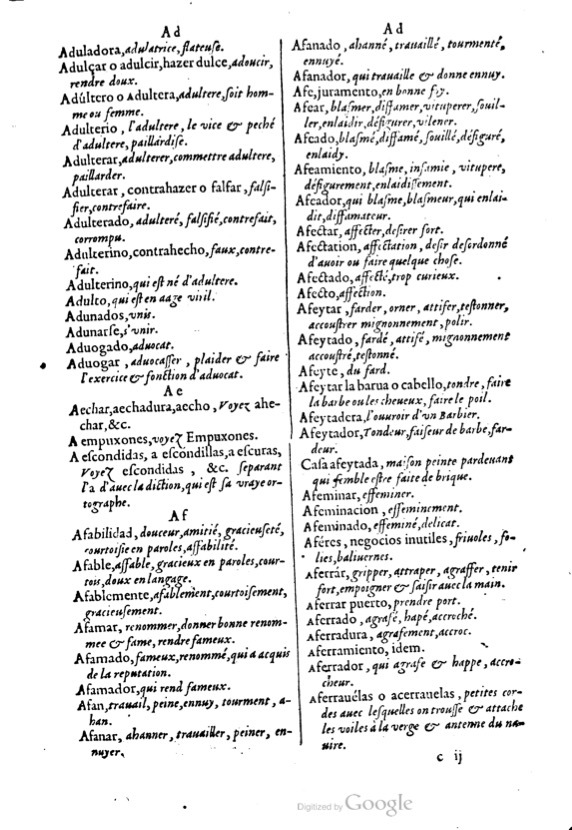 Ad
Aduladora, adulatrice, flateuse.
Adulçar o adulcir, hazer dulce, adoucir,
rendre doux.
Adúltero o Adultera, adultere, soit hom-
me ou femme.
Adulterio, l'adultere, le vice & peché
d'adultere, paillardise.
Adulterar, adulterer, commettre adultere,
paillarder.
Adulterar, contrahazer o falsar, falsi-
fier, contrefaire.
Adulterado, adulteré, falsifié, contrefait,
corrompu.
Adulterino, contrahecho, faux, contre-
fait.
Adulterino, qui est né d'adultere.
Adulto, qui est en aage viril.
Adunados, vnis.
Adunarse, s'vnir.
Aduogado, aduocat.
Aduogar, aduocasser, plaider & faire
l'exercice & fonction d'aduocat.
Ae
Aechar, aechadura, aecho, Voyez ahe-
char, &c.
A empuxones, voyez Empuxones.
A escondidas, a escondillas, a escuras,
Voyez escondidas, &c. separant
l'a d'auec la diction, qui est sa vraye or-
tographe.
Af
Afabilidad, douceur, amitié, gracieuseté,
courtoisie en paroles, affabilité.
Afable, affable, gracieux en paroles, cour-
tois, doux en langage.
Afablemente, afablement, courtoisement,
gracieusement.
Afamar, renommer, donner bonne renom-
mee & fame, rendre fameux.
Afamado, fameux, renommé, qui a acquis
de la reputation.
Afamador, qui rend fameux.
Afan, trauail, peine, ennuy, tourment, a-
han.
Afanar, ahanner, trauailler, peiner, en-
nuyer.
Ad
Afanado, ahanné, trauaillé, tourmenté,
ennuyé.
Afanador, qui trauaille & donne ennuy.
Afe, juramento, en bonne foy.
Afear, blasmer, diffamer, vituperer, souil-
ler, enlaidir, défigurer, vilener.
Afeado, blasmé, diffamé, souillé, défiguré,
enlaidy.
Afeamiento, blasme, infamie, vitupere,
défigurement, enlaidissement.
Afeador, qui blasme, blasmeur, qui enlai-
dit, diffamateur.
Afectar, affecter, desirer fort.
Afectation, affectation, desir desordonné
d'auoir ou faire quelque chose.
Afectado, affecté, trop curieux.
Afecto, affection.
Afeytar, farder, orner, attifer, testonner,
accoustrer mignonnement, polir.
Afeytado, fardé, attifé, mignonnement
accoustré, testonné.
Afeyte, du fard.
Afeytar la barua o cabello, tondre, faire
la barbe ou les cheueux, faire le poil.
Afeytadera, l'ouuroir d'vn Barbier.
Afeytador, Tondeur, faiseur de barbe, far-
deur.
Casa afeytada, maison peinte pardeuant
qui semble estre faite de brique.
Afeminar, effeminer.
Afeminacion, effeminement.
Afeminado, effeminé, delicat.
Aféres, negocios inutiles, friuoles, fo-
lies, baliuernes.
Aferrar, gripper, attraper, agraffer, tenir
fort, empoigner & saisir auec la main.
Aferrar puerto, prendre port.
Aferrado, agrafé, hapé, accroché.
Aferradura, agrafement, accroc.
Aferramiento, idem.
Aferrador, qui agrafe & happe, accro-
cheur.
Aferrauélas o acerrauelas, petites cor-
des auec lesquelles on trousse & attache
les voiles à la verge & antenne du na-
uire.
c ij
Digitized by Google